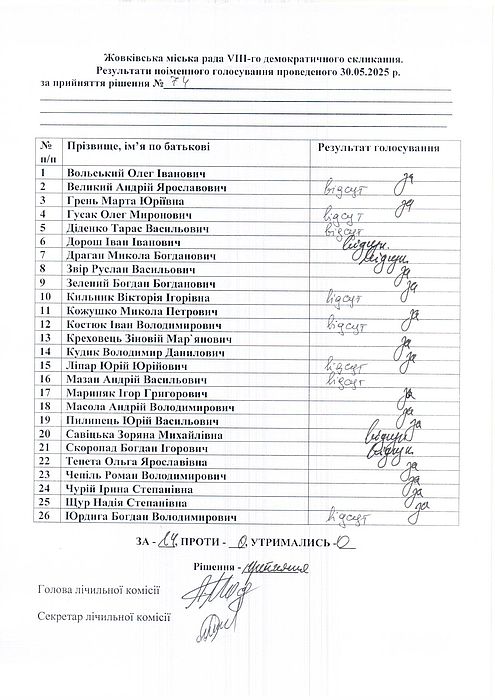 Жовківська міська рада VIII-го демократичного скликання.
Результати поіменного голосування проведеного 30.05.2025 р.
за прийняття рішення № 74
№ п/п Прізвище, ім’я по батькові Результат голосування
1 Вольський Олег Іванович за
2 Великий Андрій Ярославович відсут
3 Грень Марта Юріївна за
4 Гусак Олег Миронович відсут
5 Діденко Тарас Васильович відсут
6 Дорош Іван Іванович відсутн.
7 Драган Микола Богданович відсутн.
8 Звір Руслан Васильович за
9 Зелений Богдан Богданович за
10 Кильник Вікторія Ігорівна відсут
11 Кожушко Микола Петрович за
12 Костюк Іван Володимирович відсут
13 Креховець Зіновій Мар`янович за
14 Кудик Володимир Данилович за
15 Ліпар Юрій Юрійович відсут
16 Мазан Андрій Васильович відсут
17 Мариняк Ігор Григорович за
18 Масола Андрій Володимирович за
19 Пилипець Юрій Васильович за
20 Савіцька Зоряна Михайлівна відсутн
21 Скоропад Богдан Ігорович відсутн.
22 Тенета Ольга Ярославівна за
23 Чепіль Роман Володимирович за
24 Чурій Ірина Степанівна за
25 Щур Надія Степанівна за
26 Юрдига Богдан Володимирович відсут
ЗА - 14, ПРОТИ - 0, УТРИМАЛИСЬ - 0
Рішення - прийняте
Голова лічильної комісії
Секретар лічильної комісії